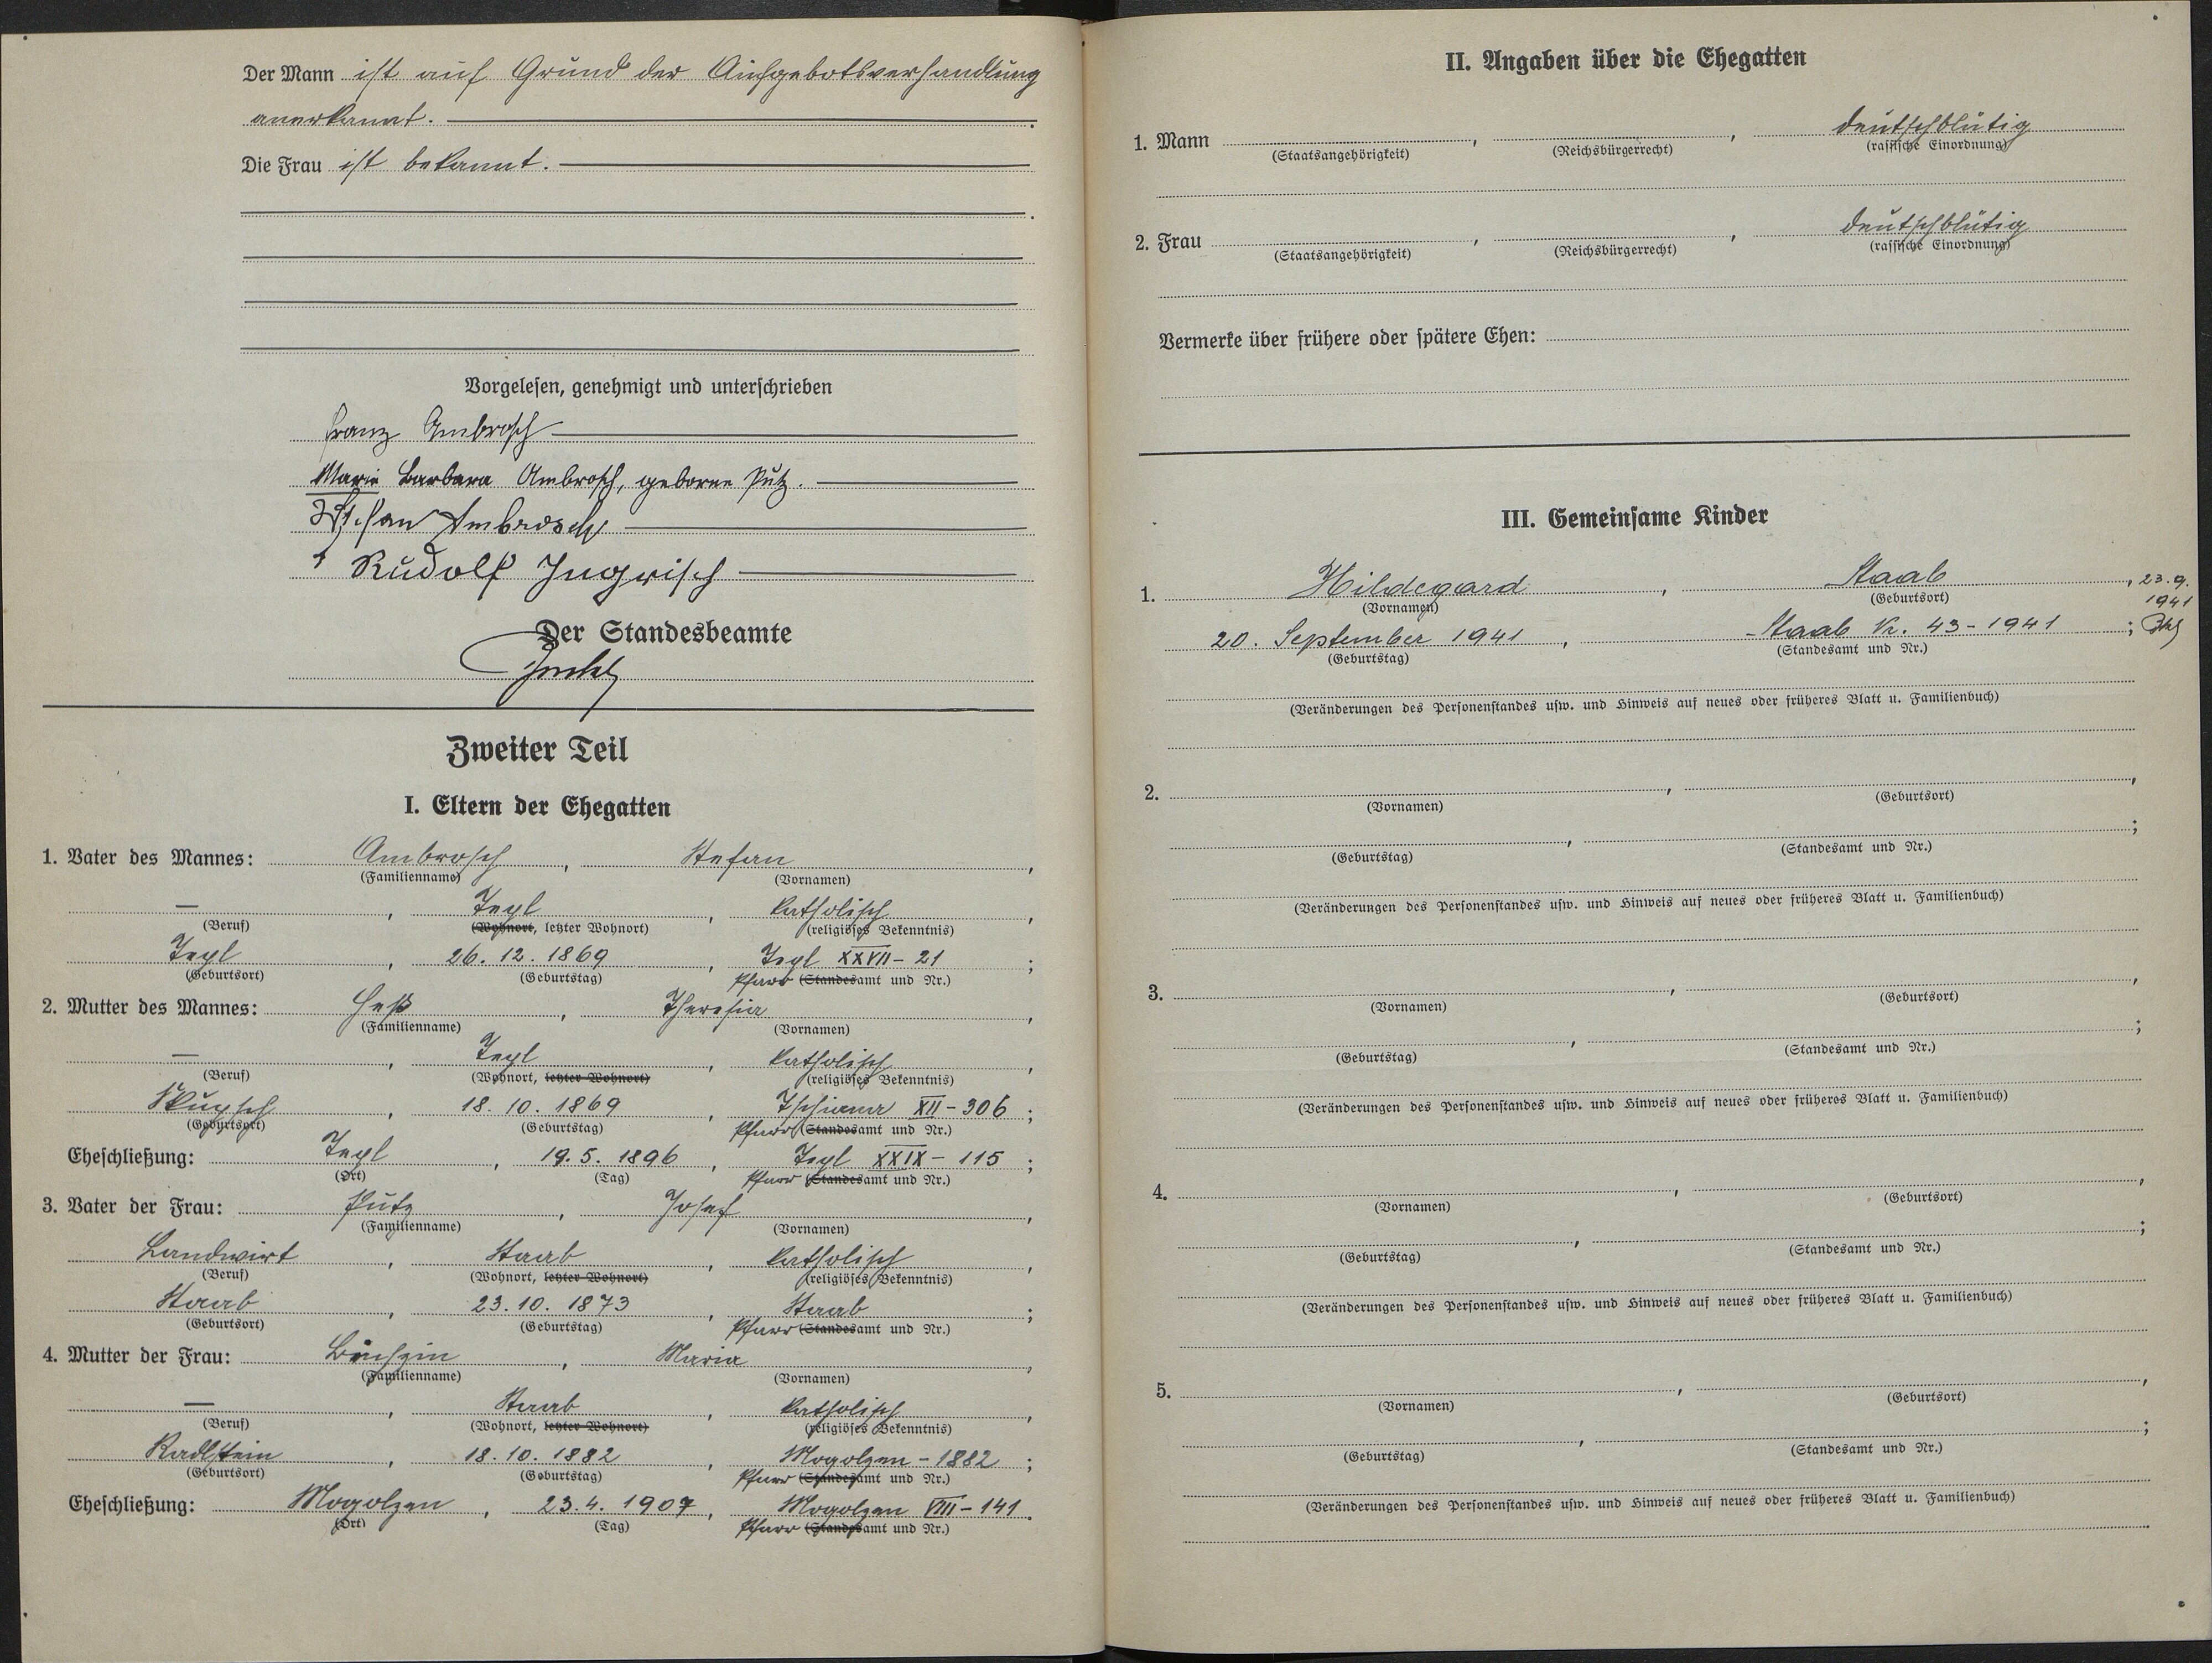 Der Mann ist auf Grund der Aufgebotsverhandlung
anerkannt.
Die Frau ist bekannt.
Vorgelesen, genehmigt und unterschrieben
Franz Ambrosch
Marie Barbara Ambrosch, geborne Pütz.
Ambrosch
Rudolf Ingrisch
Der Standesbeamte
Zweiter Teil
I. Eltern der Ehegatten
1. Vater des Mannes: Ambrosch, Stefan,
(Familienname) (Vornamen)
—, , katholisch,
(Beruf) (Wohnort, letzter Wohnort) (religiöses Bekenntnis)
, 26. 12. 1869, XXVII - 21;
(Geburtsort) (Geburtstag) Pfarr (Standesamt und Nr.)
2. Mutter des Mannes: Heß, Theresia,
(Familienname) (Vornamen)
—, , katholisch,
(Beruf) (Wohnort, letzter Wohnort) (religiöses Bekenntnis)
, 18. 10. 1869, XII - 306;
(Geburtsort) (Geburtstag) Pfarr (Standesamt und Nr.)
Eheschließung: , 19. 5. 1896, XXIX - 115;
(Ort) (Tag) Pfarr (Standesamt und Nr.)
3. Vater der Frau: Pütz, Josef,
(Familienname) (Vornamen)
Landwirt, Staab, katholisch,
(Beruf) (Wohnort, letzter Wohnort) (religiöses Bekenntnis)
Staab, 23. 10. 1873, Staab;
(Geburtsort) (Geburtstag) Pfarr (Standesamt und Nr.)
4. Mutter der Frau: , Maria,
(Familienname) (Vornamen)
—, Staab, katholisch,
(Beruf) (Wohnort, letzter Wohnort) (religiöses Bekenntnis)
Radlstein, 18. 10. 1882, Mogolzen - 1882;
(Geburtsort) (Geburtstag) Pfarr (Standesamt und Nr.)
Eheschließung: Mogolzen, 23. 4. 1907, Mogolzen VIII - 141.
(Ort) (Tag) Pfarr (Standesamt und Nr.)
II. Angaben über die Ehegatten
1. Mann , , deutschblütig
(Staatsangehörigkeit) (Reichsbürgerrecht) (rassische Einordnung)
2. Frau , , deutschblütig
(Staatsangehörigkeit) (Reichsbürgerrecht) (rassische Einordnung)
Vermerke über frühere oder spätere Ehen:
III. Gemeinsame Kinder
1. Hildegard, Staab, 23. 9.
(Vornamen) (Geburtsort) 1941
20. September 1941, Staab Nr. 43 - 1941;
(Geburtstag) (Standesamt und Nr.)
(Veränderungen des Personenstandes usw. und Hinweis auf neues oder früheres Blatt u. Familienbuch)
2. , ,
(Vornamen) (Geburtsort)
, ;
(Geburtstag) (Standesamt und Nr.)
(Veränderungen des Personenstandes usw. und Hinweis auf neues oder früheres Blatt u. Familienbuch)
3. , ,
(Vornamen) (Geburtsort)
, ;
(Geburtstag) (Standesamt und Nr.)
(Veränderungen des Personenstandes usw. und Hinweis auf neues oder früheres Blatt u. Familienbuch)
4. , ,
(Vornamen) (Geburtsort)
, ;
(Geburtstag) (Standesamt und Nr.)
(Veränderungen des Personenstandes usw. und Hinweis auf neues oder früheres Blatt u. Familienbuch)
5. , ,
(Vornamen) (Geburtsort)
, ;
(Geburtstag) (Standesamt und Nr.)
(Veränderungen des Personenstandes usw. und Hinweis auf neues oder früheres Blatt u. Familienbuch)